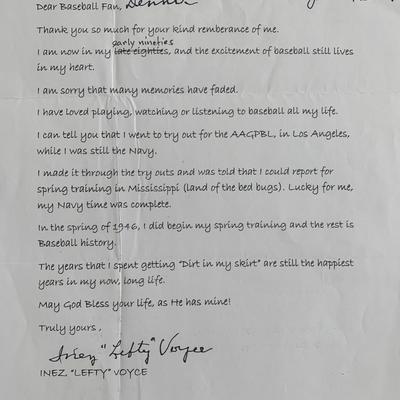 Dear Baseball Fan, Dennis
Thank you so much for your kind remberance of me.
early nineties
I am now in my late eighties, and the excitement of baseball still lives
in my heart.
I am sorry that many memories have faded.
I have loved playing, watching or listening to baseball all my life.
I can tell you that I went to try out for the AAGPBL, in Los Angeles,
while I was still the Navy.
I made it through the try outs and was told that I could report for
spring training in Mississippi (land of the bed bugs). Lucky for me,
my Navy time was complete.
In the spring of 1946, I did begin my spring training and the rest is
Baseball history.
The years that I spent getting "Dirt in my skirt" are still the happiest
years in my now, long life.
May God Bless your life, as He has mine!
Truly yours ,
Inez "Lefty" Voyce
INEZ "LEFTY" VOYCE